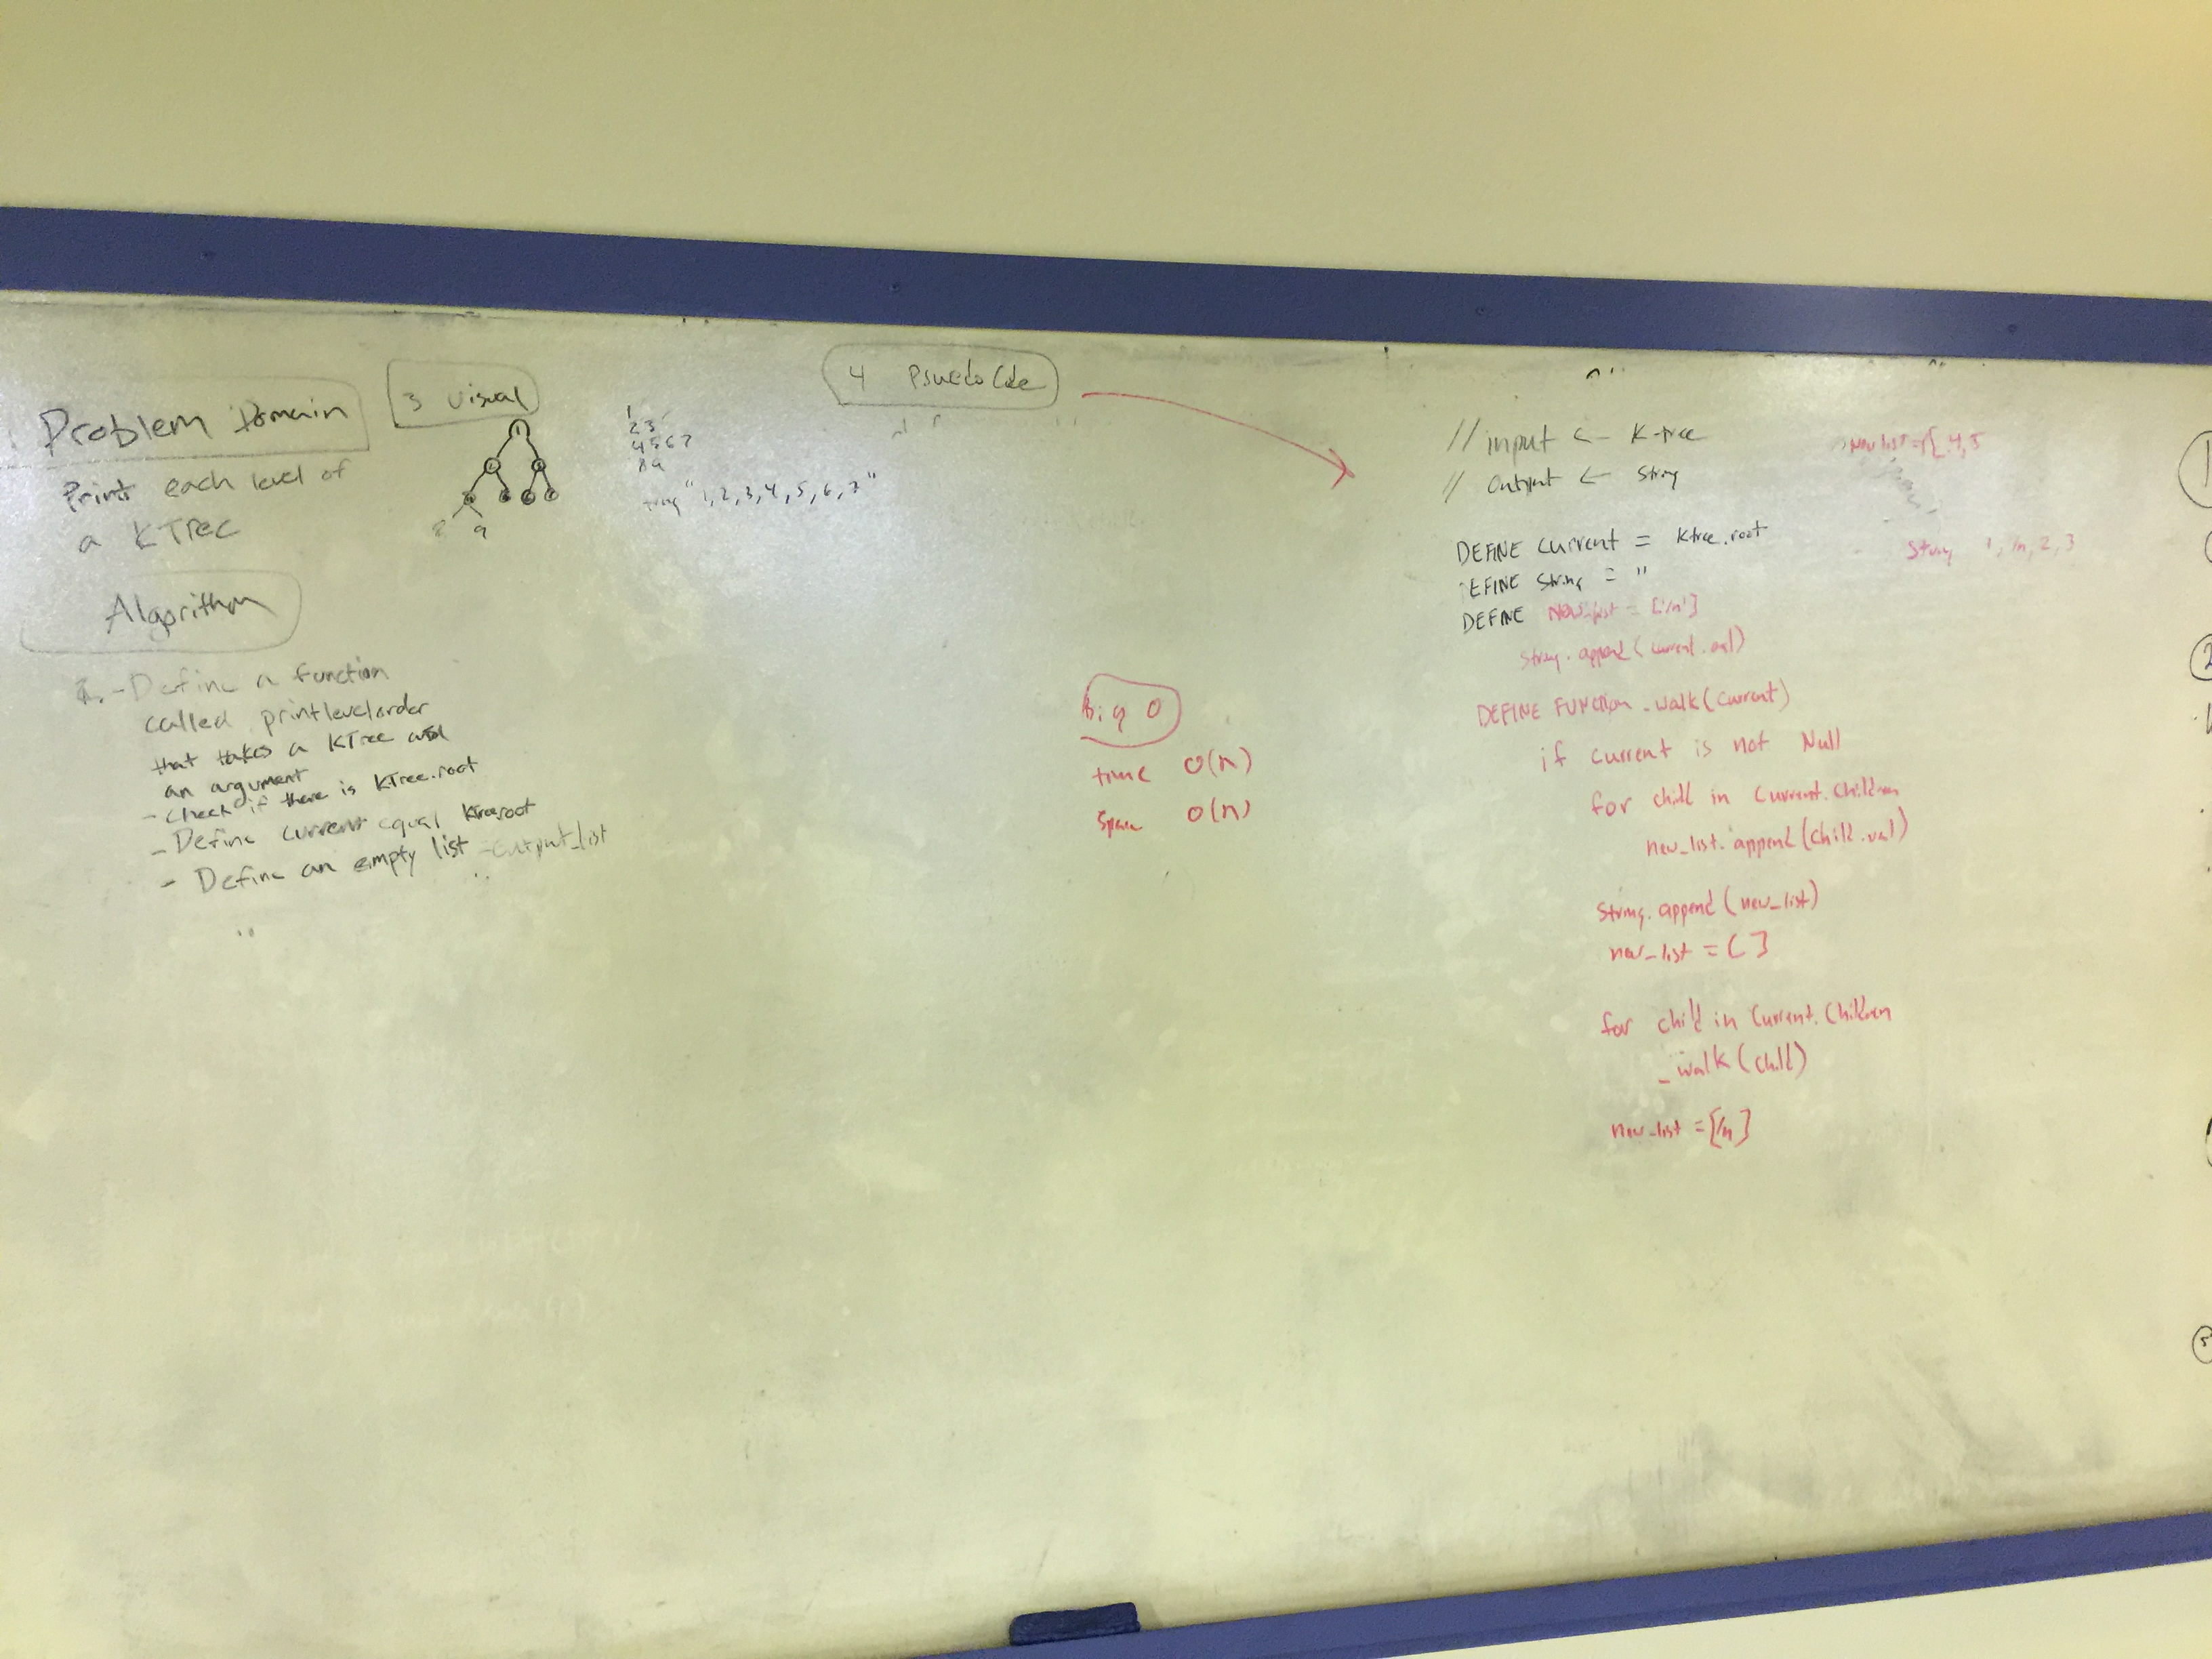 Problem Domain
Print each level of
a KTree
Algorithm
1. - Define a function
called printlevelorder
that takes a KTree as
an argument
- check if there is KTree.root
- Define current equal KTree.root
- Define an empty list - output_list
3 Visual
1
8 9
1
2 3
4 5 6 7
8 9
"1, 2, 3, 4, 5, 6, 7"
4 PsuedoCode
Big O
time O(n)
space O(n)
// input <- K-tree
// Output <- String
DEFINE current = Ktree.root
DEFINE String = ''
DEFINE New_list = ['/n']
String.append(current.val)
DEFINE FUNCtion _walk(current)
if current is not Null
for child in current.children
new_list.append(child.val)
String.append(new_list)
new_list = []
for child in current.children
_walk(child)
new_list = [/n]
New list = [ 4, 5
String 1, /n, 2, 3
1
2
5